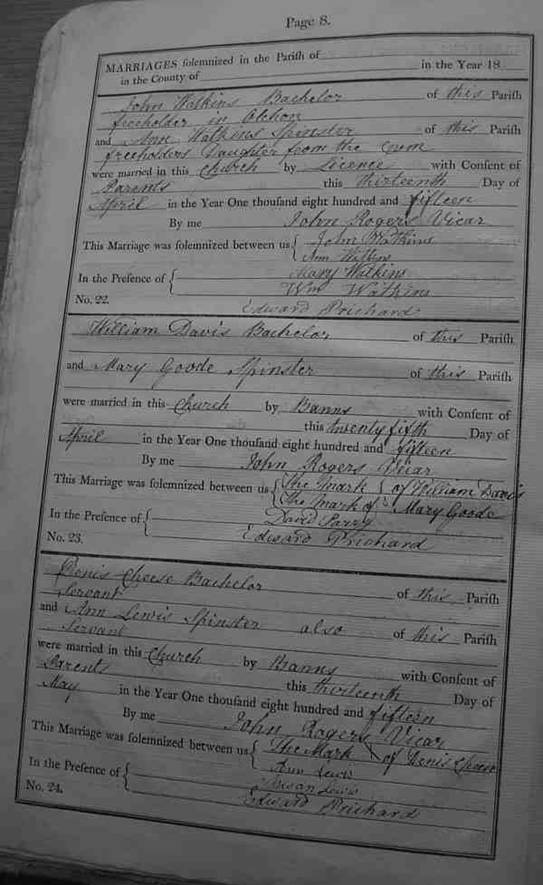 Page 8.
MARRIAGES solemnized in the Parish of in the Year 18
in the County of
John Watkins Bachelor of this Parish
freeholder in Olchon
and Ann Watkins Spinster of this Parish
freeholders Daughter from the Cwm
were married in this Church by Licence with Consent of
Parents this thirteenth Day of
April in the Year One thousand eight hundred and fifteen
By me John Rogers Vicar
This Marriage was solemnized between us { John Watkins
Ann Watkins
In the Presence of { Mary Watkins
Wm Watkins
No. 22. Edward Prichard
William Davis Bachelor of this Parish
and Mary Goode Spinster of this Parish
were married in this Church by Banns with Consent of
this twenty fifth Day of
April in the Year One thousand eight hundred and fifteen
By me John Rogers Vicar
This Marriage was solemnized between us { The Mark of William Davis
The Mark of Mary Goode
In the Presence of { David Parry
No. 23. Edward Prichard
Denis Cheese Bachelor of this Parish
Servant
and Ann Lewis Spinster also of this Parish
Servant
were married in this Church by Banns with Consent of
Parents this thirteenth Day of
May in the Year One thousand eight hundred and fifteen
By me John Rogers Vicar
This Marriage was solemnized between us { The Mark of Denis Cheese
Ann Lewis
In the Presence of { Susan Lewis
No. 24. Edward Prichard